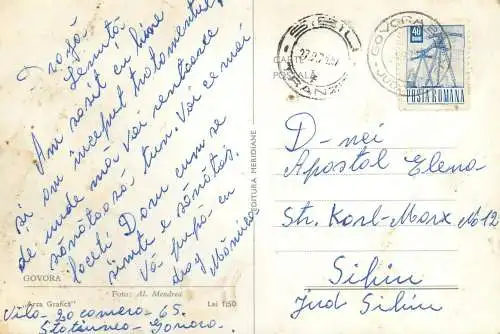 Dragă
Lenuța
Am sosit cu bine
și am început tratamentul
de unde mă voi rentoarce
sănătoasă tun. Voi ce mai
faceți Dom cum se
simte e sănătos.
Vă pupă cu
drag Mămica
GOVORA
Foto: Al. Mendrea
"Arta Grafică" Lei 1,50
Vila-30 camera-65.
Stațiunea-Govora.
EDITURA MERIDIANE
CARTE
POȘTALĂ
SIBIU
GOVORA
40
POSTA ROMANA
D-nei
Apostol Elena
Str. Karl-Marx No 12
Sibiu
Jud Sibiu